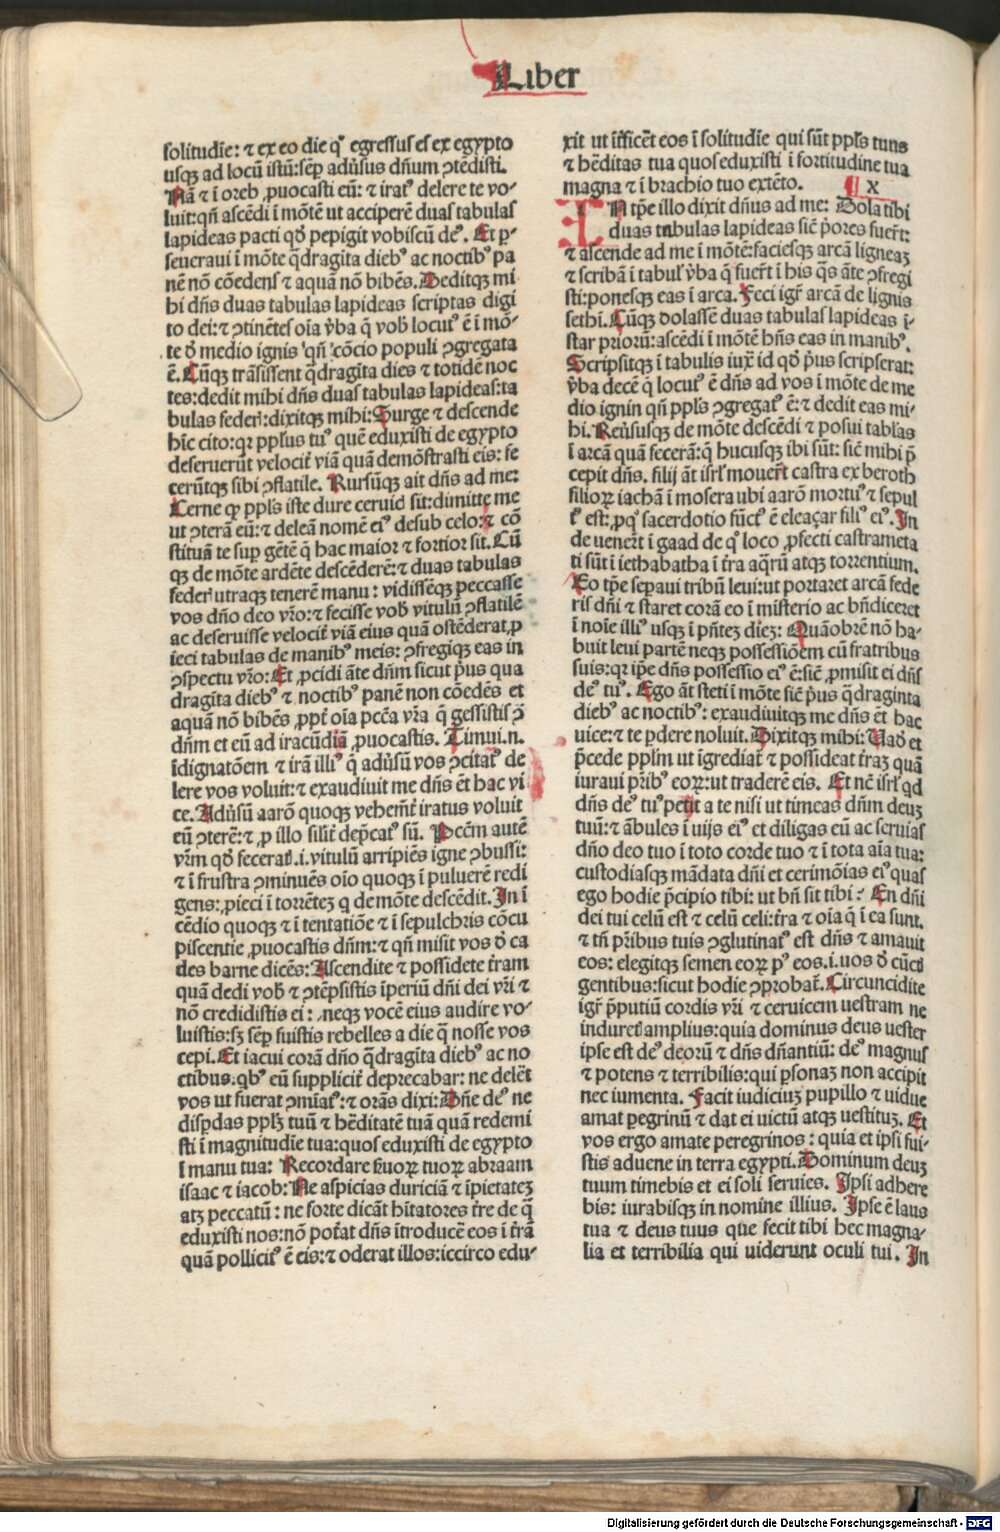 Liber
solitudīe: ⁊ ex eo die qꝰ egressus es ex egypto
usqꝫ ad locū istū: sēp adūsus dn̄um ꝯtēdisti.
Nā ⁊ ī oreb ꝓuocasti eū: ⁊ iratꝰ delere te vo-
luit: qn̄ ascēdi ī mōtē ut acciperē duas tabulas
lapideas pacti qđ pepigit vobiscū deꝰ. Et ꝑ-
seueraui ī mōte q̄dragīta diebꝰ ac noctibꝰ pa
nē nō cōedens ⁊ aquā nō bibēs. Deditqꝫ mi
hi dn̄s duas tabulas lapideas scriptas digi
to dei: ⁊ ꝯtinētes oīa v̄ba q̄ vob̄ locutꝰ ē ī mō-
te đ medio ignis qn̄ cōcio populi ꝯgregata
ē. Cūqꝫ trāsissent q̄dragīta dies ⁊ totidē noc
tes: dedit mihi dn̄s duas tabulas lapideas: ta
bulas feder̄: dixitqꝫ mihi: Surge ⁊ descende
hīc cito: qꝛ ppl̄us tuꝰ quē eduxisti de egypto
deseruerūt velocit̄ viā quā demōstrasti eis: fe
cerūtqꝫ sibi ꝯflatile. Rursūqꝫ ait dn̄s ad me:
Cerne ꝙ ppl̄s iste dure ceruicī sit: dimitte me
ut ꝯterā eū: ⁊ deleā nomē eiꝰ desub celo: ⁊ cō
stituā te suꝑ gētē q̄ hac maior ⁊ fortior sit. Cū
qꝫ de mōte ardēte descēderē: ⁊ duas tabulas
feder̄ utraqꝫ tenerē manu: vidissēqꝫ peccasse
vos dn̄o deo vr̄o: ⁊ fecisse vob̄ vitulū ꝯflatilē
ac deseruisse velocit̄ viā eius quā ostēderat, ꝓ
ieci tabulas de manibꝰ meis: ꝯfregiqꝫ eas in
ꝯspectu vr̄o: Et ꝓcidi āte dn̄m sicut p̄us qua
dragīta diebꝰ ⁊ noctibꝰ panē non cōedēs et
aquā nō bibēs ꝓpt̄ oīa pcc̄a vr̄a q̄ gessistis ꝯ̄
dn̄m et eū ad iracūdiā ꝓuocastis. Timui.n.
īdignatōem ⁊ irā illiꝰ q̄ adūsū vos ꝯcitatꝰ de
lere vos voluit: ⁊ exaudiuit me dn̄s ēt hac vi
ce. Adūsū aarō quoqꝫ vehemt̄ iratus voluit
eū ꝯterē: ⁊ ꝓ illo silit̄ dep̄catꝰ sū. Pccm̄ autē
vr̄m qđ fecerat̄.i. vitulū arripiēs igne ꝯbussi:
⁊ ī frustra ꝯminuēs oīo quoqꝫ ī puluerē redi
gens: ꝓieci ī torrētēꝫ q̄ de mōte descēdit. In ī
cēdio quoqꝫ ⁊ ī tentatiōe ⁊ ī sepulchris cōcu
piscentie ꝓuocastis dn̄m: ⁊ qn̄ misit vos đ ca
des barne dicēs: Ascendite ⁊ possidete t̄ram
quā dedi vob̄ ⁊ ꝯtēpsistis īperiū dn̄i dei vr̄i ⁊
nō credidistis ei: neqꝫ vocē eius audire vo-
luistis: sꝫ sēp̄ fuistis rebelles a die q̄ nosse vos
cepi. Et iacui corā dn̄o q̄dragīta diebꝰ ac no
ctibus. qbꝰ eū supplicit̄ deprecabar: ne delēt
vos ut fuerat ꝯmīatꝰ: ⁊ orās dixi: Dn̄e deꝰ ne
disꝑdas ppl̄ꝫ tuū ⁊ hēditatē tuā quā redemi
sti ī magnitudīe tua: quos eduxisti de egypto
ī manu tua: Recordare s̄uoꝝ tuoꝝ abraam
isaac ⁊ iacob: Ne aspicias duriciā ⁊ īpietateꝫ
atꝫ peccatū: ne forte dicāt hītatores t̄re de q̄
eduxisti nos: nō pot̄at dn̄s ītroducē eos ī t̄rā
quā pollicitꝰ ē eis: ⁊ oderat illos: iccirco edu-
xit ut īt̄ficēt eos ī solitudīe qui sūt ppl̄s tuus
⁊ hēditas tua quos eduxisti ī fortitudine tua
magna ⁊ ī brachio tuo extēto. x
IN tp̄e illo dixit dn̄us ad me: Dola tibi
duas tabulas lapideas sic̄ p̄ores fuer̄t:
⁊ ascende ad me ī mōtē: faciesqꝫ arcā ligneaꝫ
⁊ scribā ī tabul̄ v̄ba q̄ fuer̄t ī his q̄s āte ꝯfregi
sti: ponesqꝫ eas ī arca. Feci igr̄ arcā de lignis
sethī. Cūqꝫ dolassē duas tabulas lapideas ī-
star priorū: ascēdi ī mōtē hn̄s eas in manibꝰ.
Scripsitqꝫ ī tabulis iux̄ id qđ p̄us scripserat:
v̄ba decē q̄ locutꝰ ē dn̄s ad vos ī mōte de me
dio ignin qn̄ ppl̄s ꝯgregatꝰ ē: ⁊ dedit eas mi-
hi. Reūsusqꝫ de mōte descēdi ⁊ posui tabl̄as
ī arcā quā fecerā: q̄ hucusqꝫ ibi sūt: sic̄ mihi p̄
cepit dn̄s. filij āt isrl̄ mouer̄t castra ex beroth
filioꝝ iachā ī mosera ubi aarō mortuꝰ ⁊ sepul
tꝰ est: ꝓ qꝰ sacerdotio fūctꝰ ē eleaçar filiꝰ eiꝰ. In
de uener̄t ī gaad de qꝰ loco ꝓfecti castrameta
ti sūt ī iethabatha ī t̄ra aq̄rū atqꝫ torrentium.
Eo tp̄e sepaui tribū leui: ut portaret arcā fede
ris dn̄i ⁊ staret corā eo ī misterio ac bn̄diceret
ī noīe illiꝰ usqꝫ ī pn̄teꝫ dieꝫ: Quāobrē nō ha-
buit leui partē neqꝫ possessiōem cū fratribus
suis: qꝛ ip̄e dn̄s possessio eiꝰ ē: sic̄ ꝓmisit ei dn̄s
deꝰ tuꝰ. Ego āt steti ī mōte sic̄ p̄us q̄draginta
diebꝰ ac noctibꝰ: exaudiuitqꝫ me dn̄s ēt hac
uice: ⁊ te ꝑdere noluit. Dixitqꝫ mihi: Uađ et
p̄cede ppl̄m ut īgrediat̄ ⁊ possideat t̄raꝫ quā
iuraui pr̄ibꝰ eoꝝ: ut traderē eis. Et nē isrl̄ qđ
dn̄s deꝰ tuꝰ petit a te nisi ut timeas dn̄m deuꝫ
tuū: ⁊ ābules ī uijs eiꝰ et diligas eū ac seruias
dn̄o deo tuo ī toto corde tuo ⁊ ī tota aīa tua:
custodiasqꝫ mādata dn̄i et cerimōias eiꝰ quas
ego hodie p̄cipio tibi: ut bn̄ sit tibi: En dn̄i
dei tui celū est ⁊ celū celi: t̄ra ⁊ oīa q̄ ī ea sunt.
⁊ tn̄ pr̄ibus tuis ꝯglutinatꝰ est dn̄s ⁊ amauit
eos: elegitqꝫ semen eoꝝ pꝰ eos.i. uos đ cūct̄
gentibus: sicut hodie ꝯprobat̄. Circuncidite
igr̄ p̄putiū cordis vr̄i ⁊ ceruicem uestram ne
induret̄ amplius: quia dominus deus uester
ipse est deꝰ deorū ⁊ dn̄s dn̄antiū: deꝰ magnus
⁊ potens ⁊ terribilis: qui ꝑsonaꝫ non accipit
nec iumenta. Facit iudiciuꝫ pupillo ⁊ uidue
amat ꝑegrinū ⁊ dat ei uictū atqꝫ uestituꝫ. Et
vos ergo amate peregrinos: quia et ipsi fui-
stis aduene in terra egypti. Dominum deuꝫ
tuum timebis et ei soli seruies. Ipsi adhere
bis: iurabisqꝫ in nomine illius. Ipse ē laus
tua ⁊ deus tuus que fecit tibi hec magna-
lia et terribilia qui uiderunt oculi tui. In
Digitalisierung gefördert durch die Deutsche Forschungsgemeinschaft - DFG